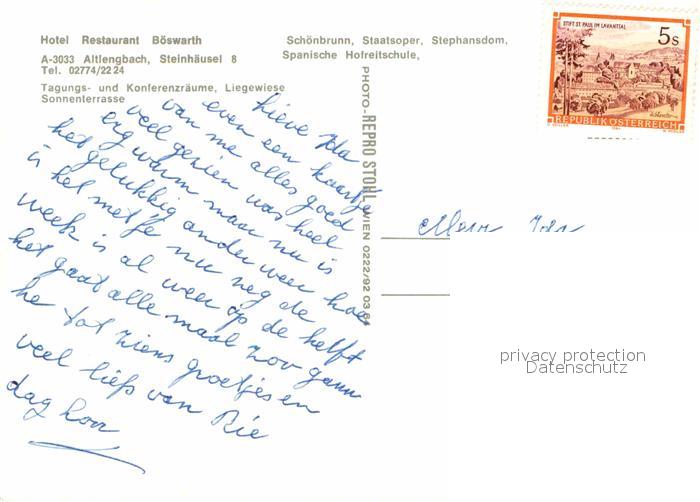 Hotel Restaurant Böswarth
A-3033 Altlengbach, Steinhäusel 8
Tel. 02774/22 24
Tagungs- und Konferenzräume, Liegewiese
Sonnenterrasse
Schönbrunn, Staatsoper, Stephansdom,
Spanische Hofreitschule,
PHOTO-REPRO STOHL WIEN 0222/92 03 64
STIFT ST. PAUL IM LAVANTTAL
5s
REPUBLIK ÖSTERREICH
lieve Ida
even een kaartje
van me alles goed
veel gezien was heel
erg warm maar nu is
het gelukkig ander weer hoe
is het met je nu nog de
week is al weer op de helft
het gaat alle maal zoo gauw
he tot ziens groetjes en
veel liefs van Rie
dag hoor
privacy protection
Datenschutz